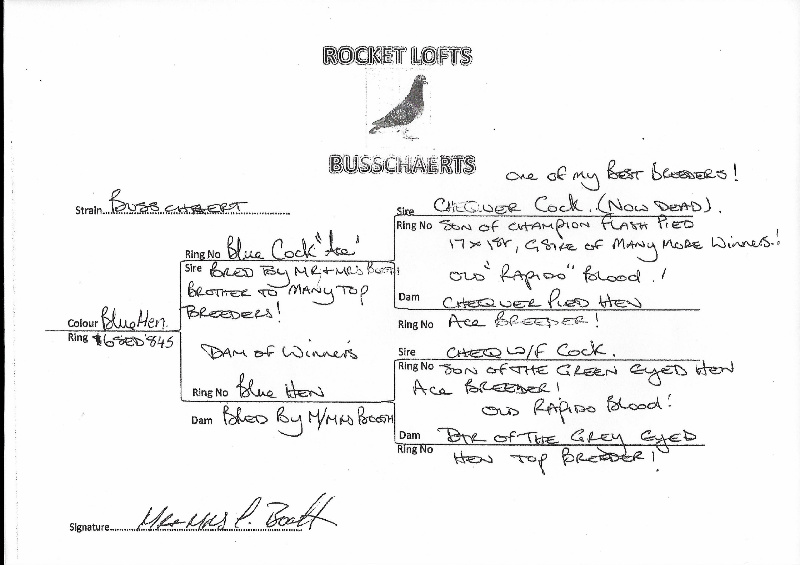 ROCKET LOFTS
BUSSCHAERTS
One of my Best Breeders!
Strain Busschaert
Sire Chequer Cock. (Now Dead).
Ring No Son of Champion Flash Pied
17 x 1st, G. Sire of Many More Winners!
Old "Rapido" Blood!
Dam Chequer Pied Hen
Ring No Ace Breeder!
Ring No Blue Cock "Ace"
Sire Bred By Mr + Mrs Booth
Brother to Many Top
Breeders!
Colour Blue Hen
Ring 845
Dam of Winners
Ring No Blue Hen
Dam Bred By M/Mrs Booth
Sire Cheq W/F Cock.
Ring No Son of the Green Eyed Hen
Ace Breeder!
Old Rapido Blood!
Dam Dtr of the Grey Eyed
Ring No Hen Top Breeder!
Signature Mr + Mrs P. Booth